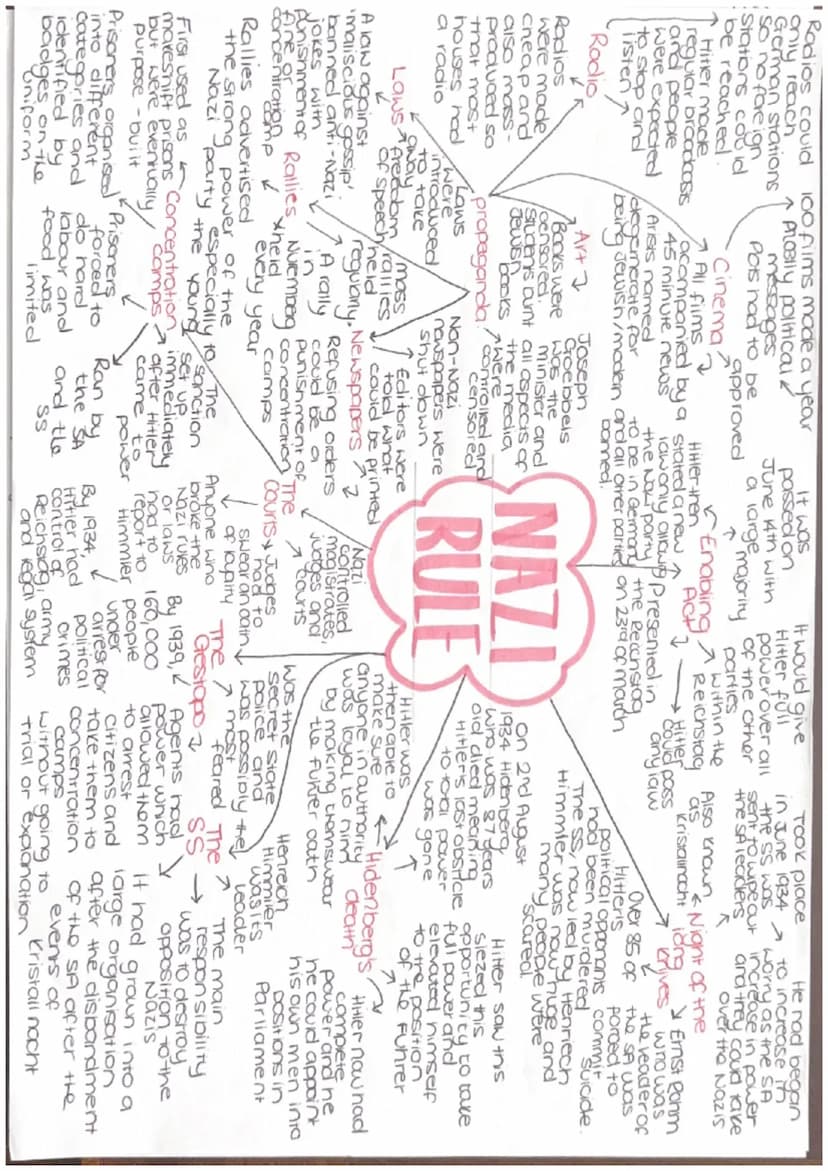 NAZI
RULE
Radio
Radios could
only reach
German stations
so no foreign
stations could
be reached.
Hitler made
regular broadcasts
and people
were expected
to stop and
listen
Radios
were made
cheap and
also mass-
produced so
that most
houses had
a radio
Cinema
100 films made a year
Mostly political
messages
Plots had to be
approved
All films
accompanied by a
45 minute news
Art
Artists named
degenerate for
being Jewish/modern
Books were
censored.
Students burnt
Jewish books
propaganda
Joseph
Goebbels
was the
minister and
all aspects of
the media
were
controlled and
censored
Laws
Laws
were
introduced
to take
away
freedom
of speech
A law against
'maliscious gossip'
banned anti-Nazi
jokes with
punishment of
fine or
concentration
camp
Rallies
mass
rallies
held
regularly.
A rally
in
Nuremberg
held
every year
Rallies advertised
the strong power of the
Nazi party especially to
the young
Newspapers
Non-Nazi
newspapers were
shut down
Editors were
told what
could be printed
Refusing orders
could be a
punishment of
concentration
camps
The
Courts
Nazi
controlled
magistrates,
judges and
courts
Judges
had to
swear an oath
of loyalty
Anyone who
broke the
Nazi rules
or laws
had to
report to
Himmler
By 1934
Hitler had
control of
Reichstag, army
and legal system
Concentration
camps
The
sanction
set up
immediately
after Hitler
came to
power
First used as
makeshift prisons
but were eventually
purpose-built
Prisoners organised
into different
categories and
identified by
badges on the
uniform
Prisoners
forced to
do hard
labour and
food was
limited
Ran by
the SA
and the
SS
Enabling
Act
It was
passed on
June 14th with
a large
majority
It would give
Hitler full
power over all
of the other
parties
within the
Reichstag
Hitler
could pass
any law
Presented in
the Reichstag
on 23rd of march
Hitler then
stated a new
law only allowing
the Nazi party
to be in Germany
and all other parties
banned.
Night of the
long
knives
Took place
in June 1934
the SS was
sent to wipe out
the SA leaders
He had began
to increase in
worry as the SA
increase in power
and they could take
over the Nazis
Also known
as
Kristallnacht
Ernst Rohm
who was
the leader of
the SA was
forced to
commit
suicide.
Over 85 of
Hitler's
political opponants
had been murdered
The SS, now led by Henriech
Himmler was now huge and
many people were
scared.
Hidenberg's
death
On 2nd August
1934 Hidenberg
who was 87 years
old died meaning
Hitlers last obsticle
to total power
was gone
Hitler saw this
opportunity to take
full power and
elevated himself
to the position
of the Fuhrer
Hitler now had
complete
power and he
he could appoint
his own men into
positions in
Parliament
Hitler was
then able to
make sure
anyone in authority
was loyal to him
by making them swear
the fuhrer oath
The
Gestapo
Was the
secret state
police and
was possibly the
most
feared
By 1939,
160,000
people
under
arrest for
political
crimes
Agents had
power which
allowed them
to arrest
citizens and
take them to
concentration
camps
without going to
trial or explanation
The
SS
Henreich
Himmler
was its
leader
The main
responsibility
was to destroy
opposition to the
Nazis
It had grown into a
large organisation
after the disbandment
of the SA after the
events of
Kristallnacht